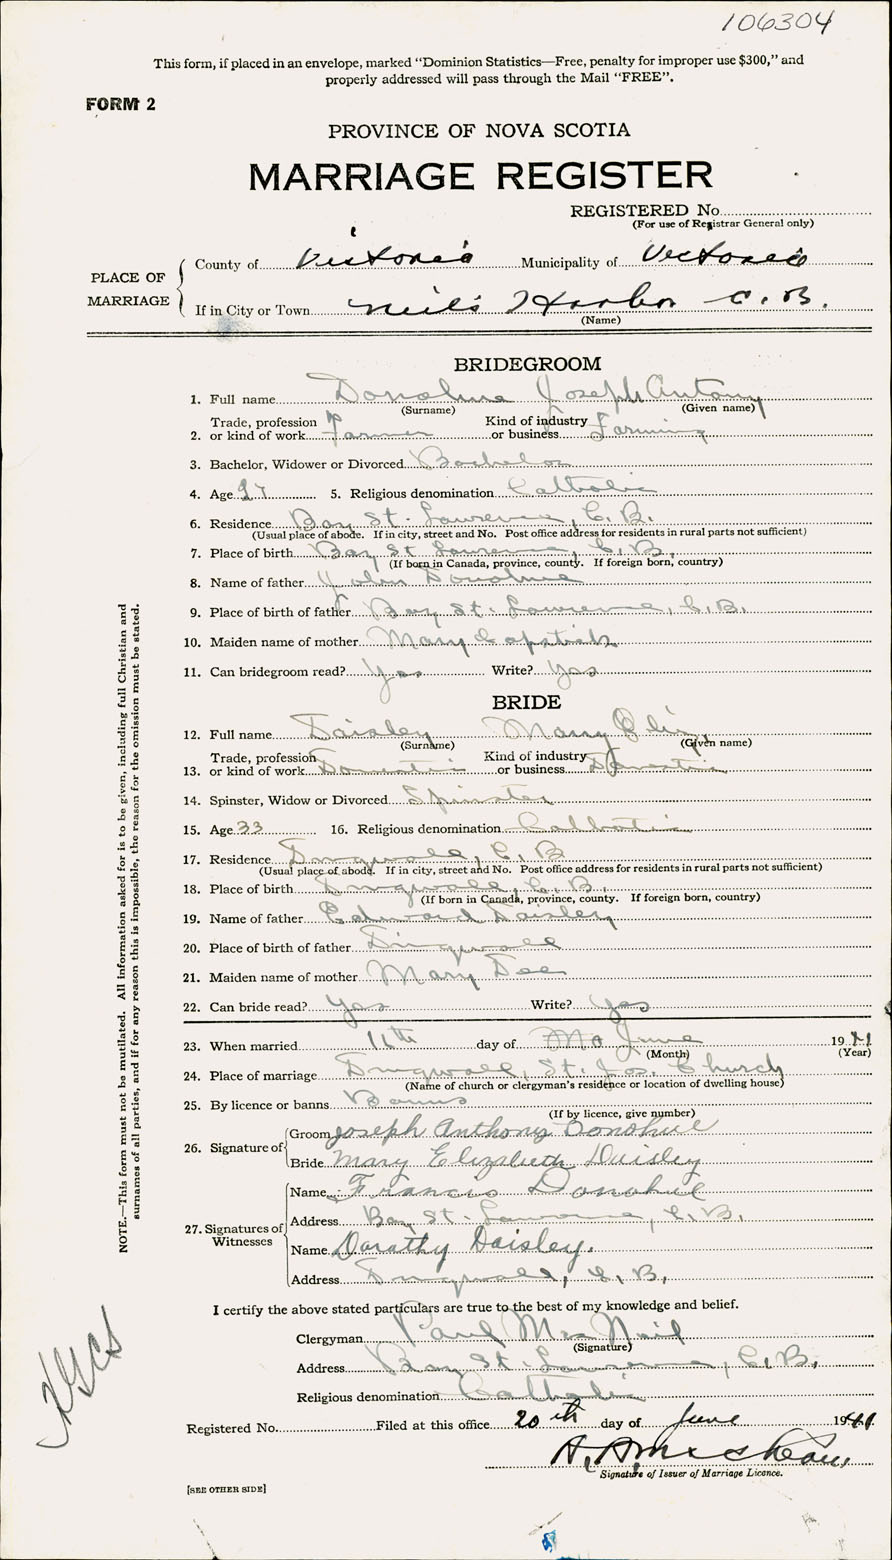 106304
This form, if placed in an envelope, marked "Dominion Statistics—Free, penalty for improper use $300," and
properly addressed will pass through the Mail "FREE".
FORM 2
PROVINCE OF NOVA SCOTIA
MARRIAGE REGISTER
REGISTERED No.
(For use of Registrar General only)
PLACE OF MARRIAGE
County of Victoria Municipality of Victoria
If in City or Town Neil's Harbor C.B.
(Name)
BRIDEGROOM
1. Full name Donohue Joseph Antony
(Surname) (Given name)
2. Trade, profession or kind of work Farmer Kind of industry or business Farming
3. Bachelor, Widower or Divorced Bachelor
4. Age 27 5. Religious denomination Catholic
6. Residence Bay St. Lawrence, C.B.
(Usual place of abode. If in city, street and No. Post office address for residents in rural parts not sufficient)
7. Place of birth Bay St Lawrence, C.B.
(If born in Canada, province, county. If foreign born, country)
8. Name of father John Donohue
9. Place of birth of father Bay St. Lawrence, C.B.
10. Maiden name of mother Mary Capstick
11. Can bridegroom read? Yes Write? Yes
BRIDE
12. Full name Daisley Mary Eliz
(Surname) (Given name)
13. Trade, profession or kind of work Domestic Kind of industry or business Domestic
14. Spinster, Widow or Divorced Spinster
15. Age 33 16. Religious denomination Catholic
17. Residence Dingwall, C.B
(Usual place of abode. If in city, street and No. Post office address for residents in rural parts not sufficient)
18. Place of birth Dingwall, C.B.
(If born in Canada, province, county. If foreign born, country)
19. Name of father Edward Daisley
20. Place of birth of father Dingwall
21. Maiden name of mother Mary Dee
22. Can bride read? Yes Write? Yes
23. When married 11th day of June 1941
(Month) (Year)
24. Place of marriage Dingwall, St. Jos. Church
(Name of church or clergyman's residence or location of dwelling house)
25. By licence or banns Banns
(If by licence, give number)
26. Signature of
Groom Joseph Anthony Donohue
Bride Mary Elizabeth Daisley
27. Signatures of Witnesses
Name Francis Donohue
Address Bay St. Lawrence, C.B.
Name Dorathy Daisley.
Address Dingwall, C.B.
I certify the above stated particulars are true to the best of my knowledge and belief.
Clergyman Paul MacNeil
(Signature)
Address Bay St. Lawrence, C.B.
Religious denomination Catholic
Registered No. Filed at this office 20th day of June 1941
Signature of Issuer of Marriage Licence.
[SEE OTHER SIDE]
NOTE.—This form must not be mutilated. All information asked for is to be given, including full Christian and
surnames of all parties, and if for any reason this is impossible, the reason for the omission must be stated.